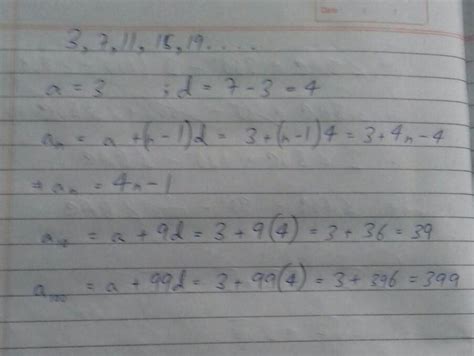 Date
3, 7, 11, 15, 19 . . . .
a = 3 ; d = 7 - 3 = 4
aₙ = a + (n - 1)d = 3 + (n - 1)4 = 3 + 4n - 4
⇒ aₙ = 4n - 1
a₁₀ = a + 9d = 3 + 9(4) = 3 + 36 = 39
a₁₀₀ = a + 99d = 3 + 99(4) = 3 + 396 = 399